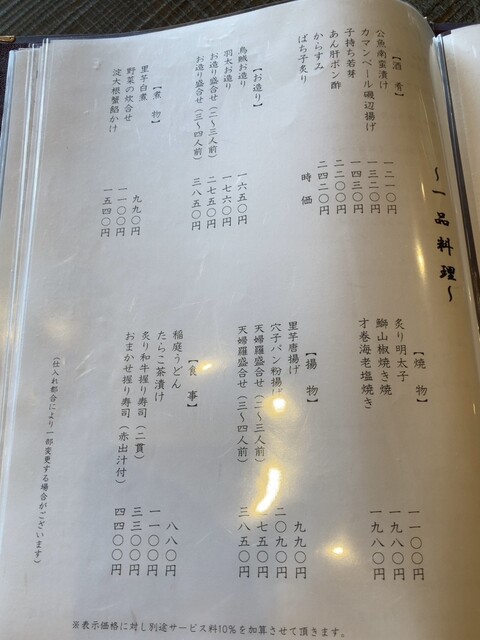 ～一品料理～
【酒肴】
公魚南蛮漬け 一二一〇円
カマンベール磯辺揚げ 一三二〇円
子持ち若芽 一四三〇円
あん肝ポン酢 二二〇〇円
からすみ 二四二〇円
ばち子炙り 時価
【お造り】
烏賊お造り 一六五〇円
羽太お造り 一七六〇円
お造り盛合せ（二～三人前） 二七五〇円
お造り盛合せ（三～四人前） 三八五〇円
【煮物】
里芋白煮 九九〇円
野菜の炊合せ 一一〇〇円
淀大根蟹餡かけ 一五四〇円
【焼物】
炙り明太子 一一〇〇円
鰤山椒焼き焼 一九八〇円
才巻海老塩焼き 一九八〇円
【揚物】
里芋唐揚げ 九九〇円
穴子パン粉揚げ 二〇九〇円
天婦羅盛合せ（二～三人前） 二七五〇円
天婦羅盛合せ（三～四人前） 三八五〇円
【食事】
稲庭うどん 八八〇円
たらこ茶漬け 一一〇〇円
炙り和牛握り寿司（二貫） 三三〇〇円
おまかせ握り寿司（赤出汁付） 四四〇〇円
（仕入れ都合により一部変更する場合がございます）
※表示価格に対し別途サービス料10％を加算させて頂きます。